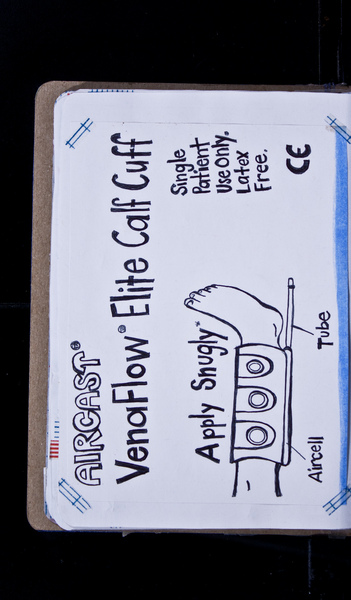 AIRCAST®
VenaFlow® Elite Calf Cuff
Apply Snugly*
Single
Patient
Use Only.
Latex
Free.
CE
Aircell
Tube